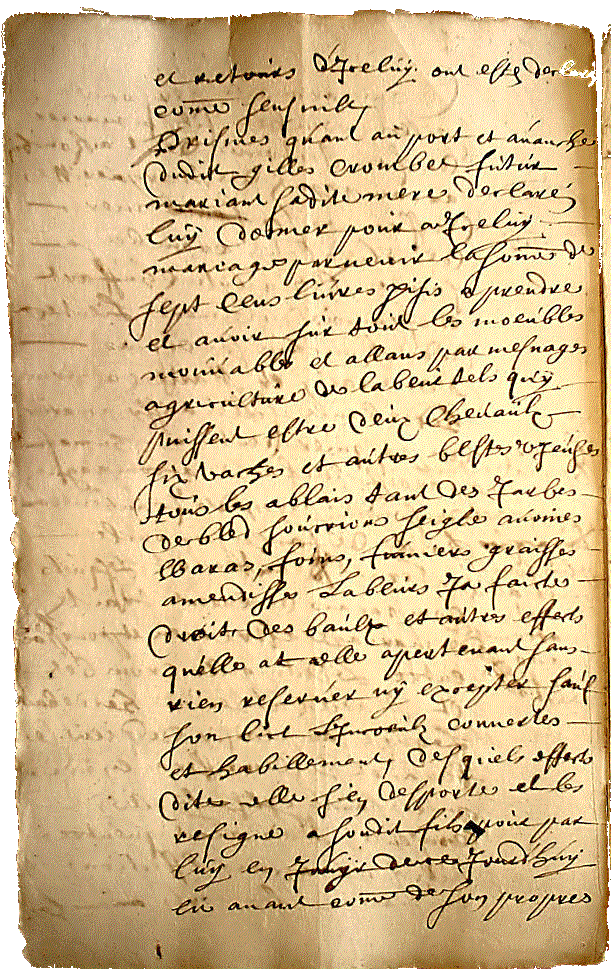 et retours d'Jceluy ont esté declarez
come sensuilt
Primes quant au port et auanche
dudit gilles Crombet futur
mariant sadite mere declaré
luy donner pour a Jceluy
mariage paruenir la some de
sept cens liures psis a prendre
et auoir sur tout les moeubles
mouuables et allans par mesnages
agriculture de labeur tels quy
puissent estre deux Cheuaulx
six vaches et autres bestes
tous les ablais tant des Jarbes
de bled soucrions seigle auoines
Waras, foins, fumiers graisses
amendisses labeurs Ja faictes
droict des baulx et autres effects
quelle at a elle apertenant sans
rien reseruer ny excepter sauf
son lict Linceulz couuertes
et habillement, desquels effects
dite elle s'en desporte et les
resigne a sondit fils pour par
luy en Jouyr de ce Jourdhuy
en auant come de son propres